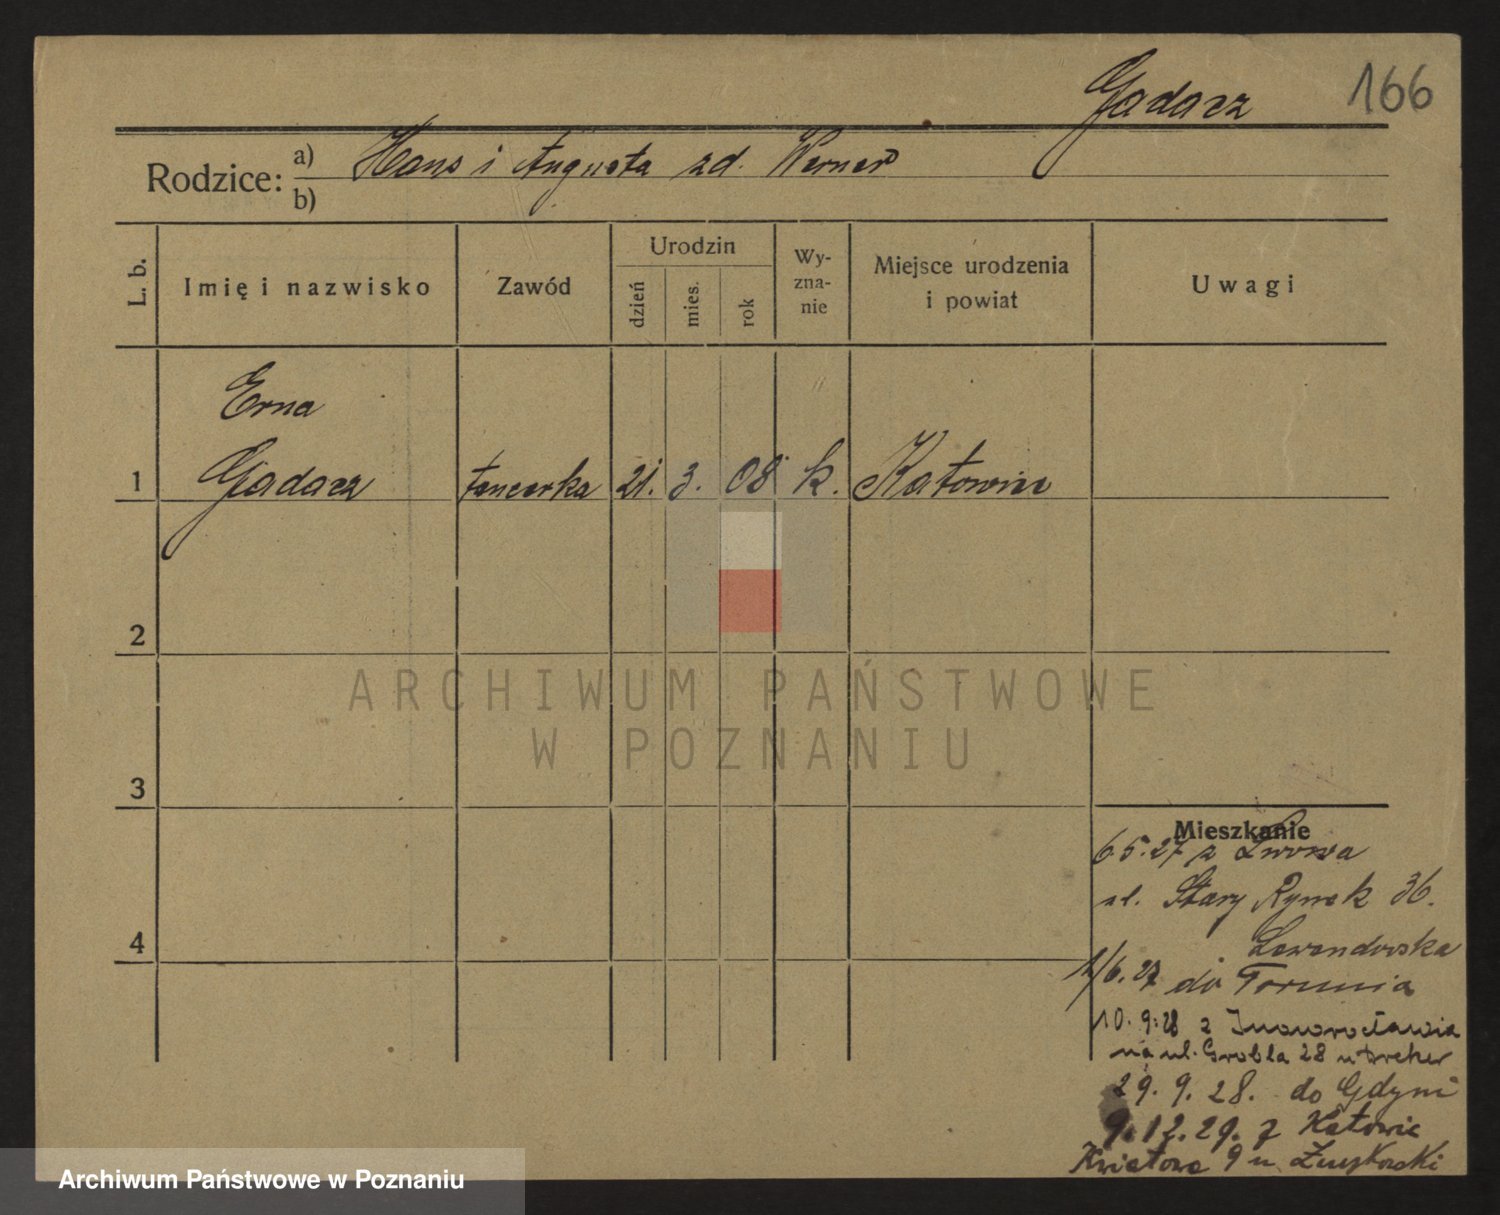 Gadacz 166
Rodzice: a) Hans i Augusta zd. Werner
b)
L. b. Imię i nazwisko Zawód Urodzin dzień mies. rok Wyznanie Miejsce urodzenia i powiat Uwagi
Erna
1 Gadacz tancerka 21. 3. 08 k. Katowice
2
ARCHIWUM PAŃSTWOWE
W POZNANIU
3
Mieszkanie
6.5.27 z Lwowa
ul. Stary Rynek 36.
4 Lewandowska
1/6.27 do Torunia
10.9.28 z Inowrocławia
na ul. Grobla 28 u Dreher
29.9.28. do Gdyni
9.12.29. z Katowic
Kwiatowa 9 u
Archiwum Państwowe w Poznaniu